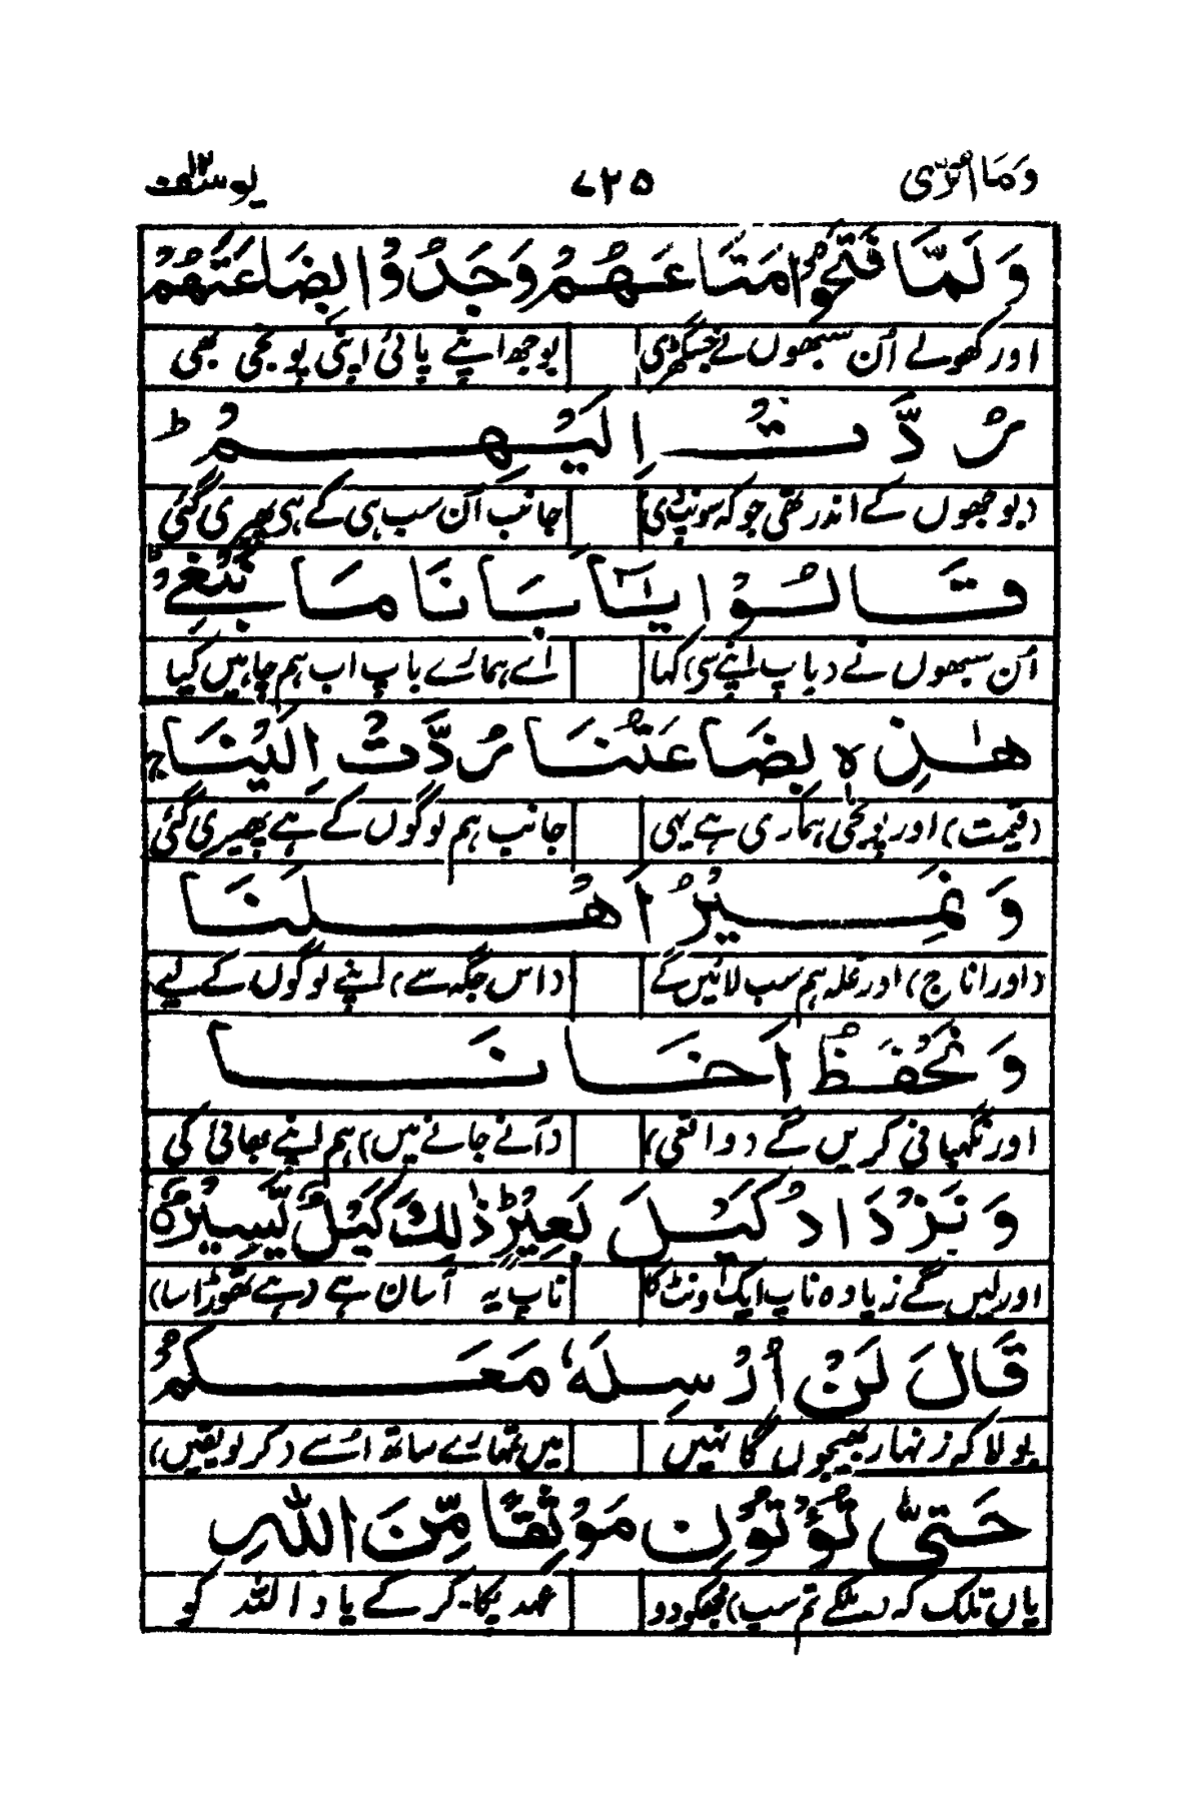 وَمَا اُبَرِّیُٔ ۷۲۵ یوسف ۱۲
وَ لَمَّا فَتَحُوْا مَتَاعَهُمْ وَجَدُوْا بِضَاعَتَهُمْ
اور کھولے اُن سبھوں نے جس گھڑی بوجھ اپنے پائی اپنی پونجی بھی
رُدَّتْ اِلَیْهِمْ ؕ
(بوجھوں کے اندر تھی جو کہ سونپی) جانب اُن سب ہی کے ہی پھیری گئی
قَالُوْا یٰۤاَبَانَا مَا نَبْغِیْ ؕ
اُن سبھوں نے (باپ اپنے سے) کہا اے ہمارے باپ اب ہم چاہیں کیا
هٰذِهٖ بِضَاعَتُنَا رُدَّتْ اِلَیْنَا ۚ
(قیمت) اور پونجی ہماری ہے یہی جانب ہم لوگوں کے ہے پھیری گئی
وَ نَمِیْرُ اَهْلَنَا
(اور اناج) اور غلہ ہم سب لائیں گے (اس جگہ سے) اپنے لوگوں کے لیے
وَ نَحْفَظُ اَخَانَا
اور نگہبانی کریں گے (واقعی) (آنے جانے میں) ہم اپنے بھائی کی
وَ نَزْدَادُ كَیْلَ بَعِیْرٍ ؕ ذٰلِكَ كَیْلٌ یَّسِیْرٌ ۝
اور لیں گے زیادہ ناپ ایک اونٹ کا ناپ یہ آسان ہے (ہے تھوڑا سا)
قَالَ لَنْ اُرْسِلَهٗ مَعَكُمْ
بولا کہ زنہار بھیجوں گا نہیں میں تمہارے ساتھ اُسے (کر لو یقیں)
حَتّٰی تُؤْتُوْنِ مَوْثِقًا مِّنَ اللّٰهِ
یاں تلک کہ (ملکے تم سب) مجھکو دو عہد پکا کر کے یاد اللہ کو